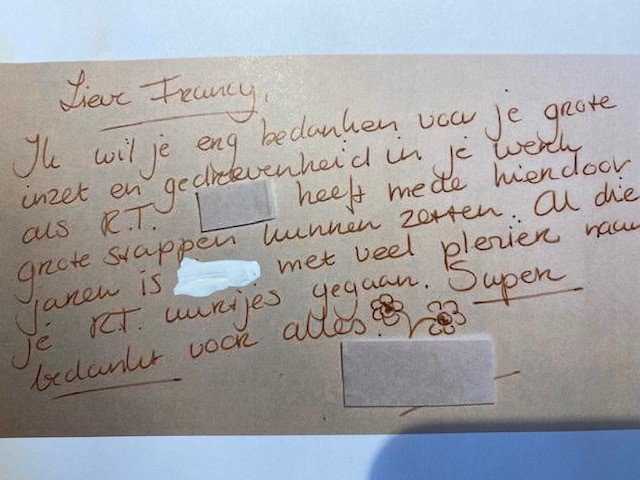 Lieve Francy,
Ik wil je erg bedanken voor je grote
inzet en gedrevenheid in je werk
als R.T. heeft mede hierdoor
grote stappen kunnen zetten. Al die
jaren is met veel plezier naar
je R.T. uurtjes gegaan. Super
bedankt voor alles.